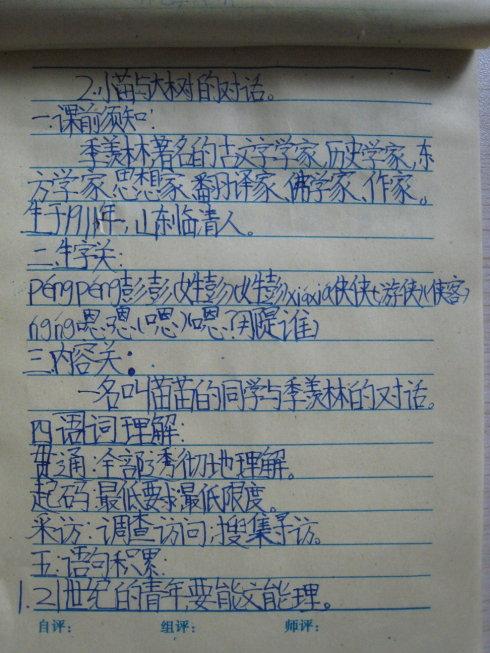 2.小苗与大树的对话。
一.课前须知:
季羡林著名的古文字学家、历史学家、东
方学家、思想家、翻译家、佛学家、作家。
生于1911年,山东临清人。
二.生字关:
péngpéng彭彭(姓彭)(姓彭)xiaxia侠侠(游侠)(侠客)
ngng嗯嗯(嗯)(嗯?
三.内容关:
一名叫苗苗的同学与季羡林的对话。
四语词理解:
贯通:全部透彻地理解。
起码:最低要求;最低限度。
采访:调查访问;搜集寻访。
五.语句积累
1.21世纪的青年,要能文能理。
自评: 组评: 师评: